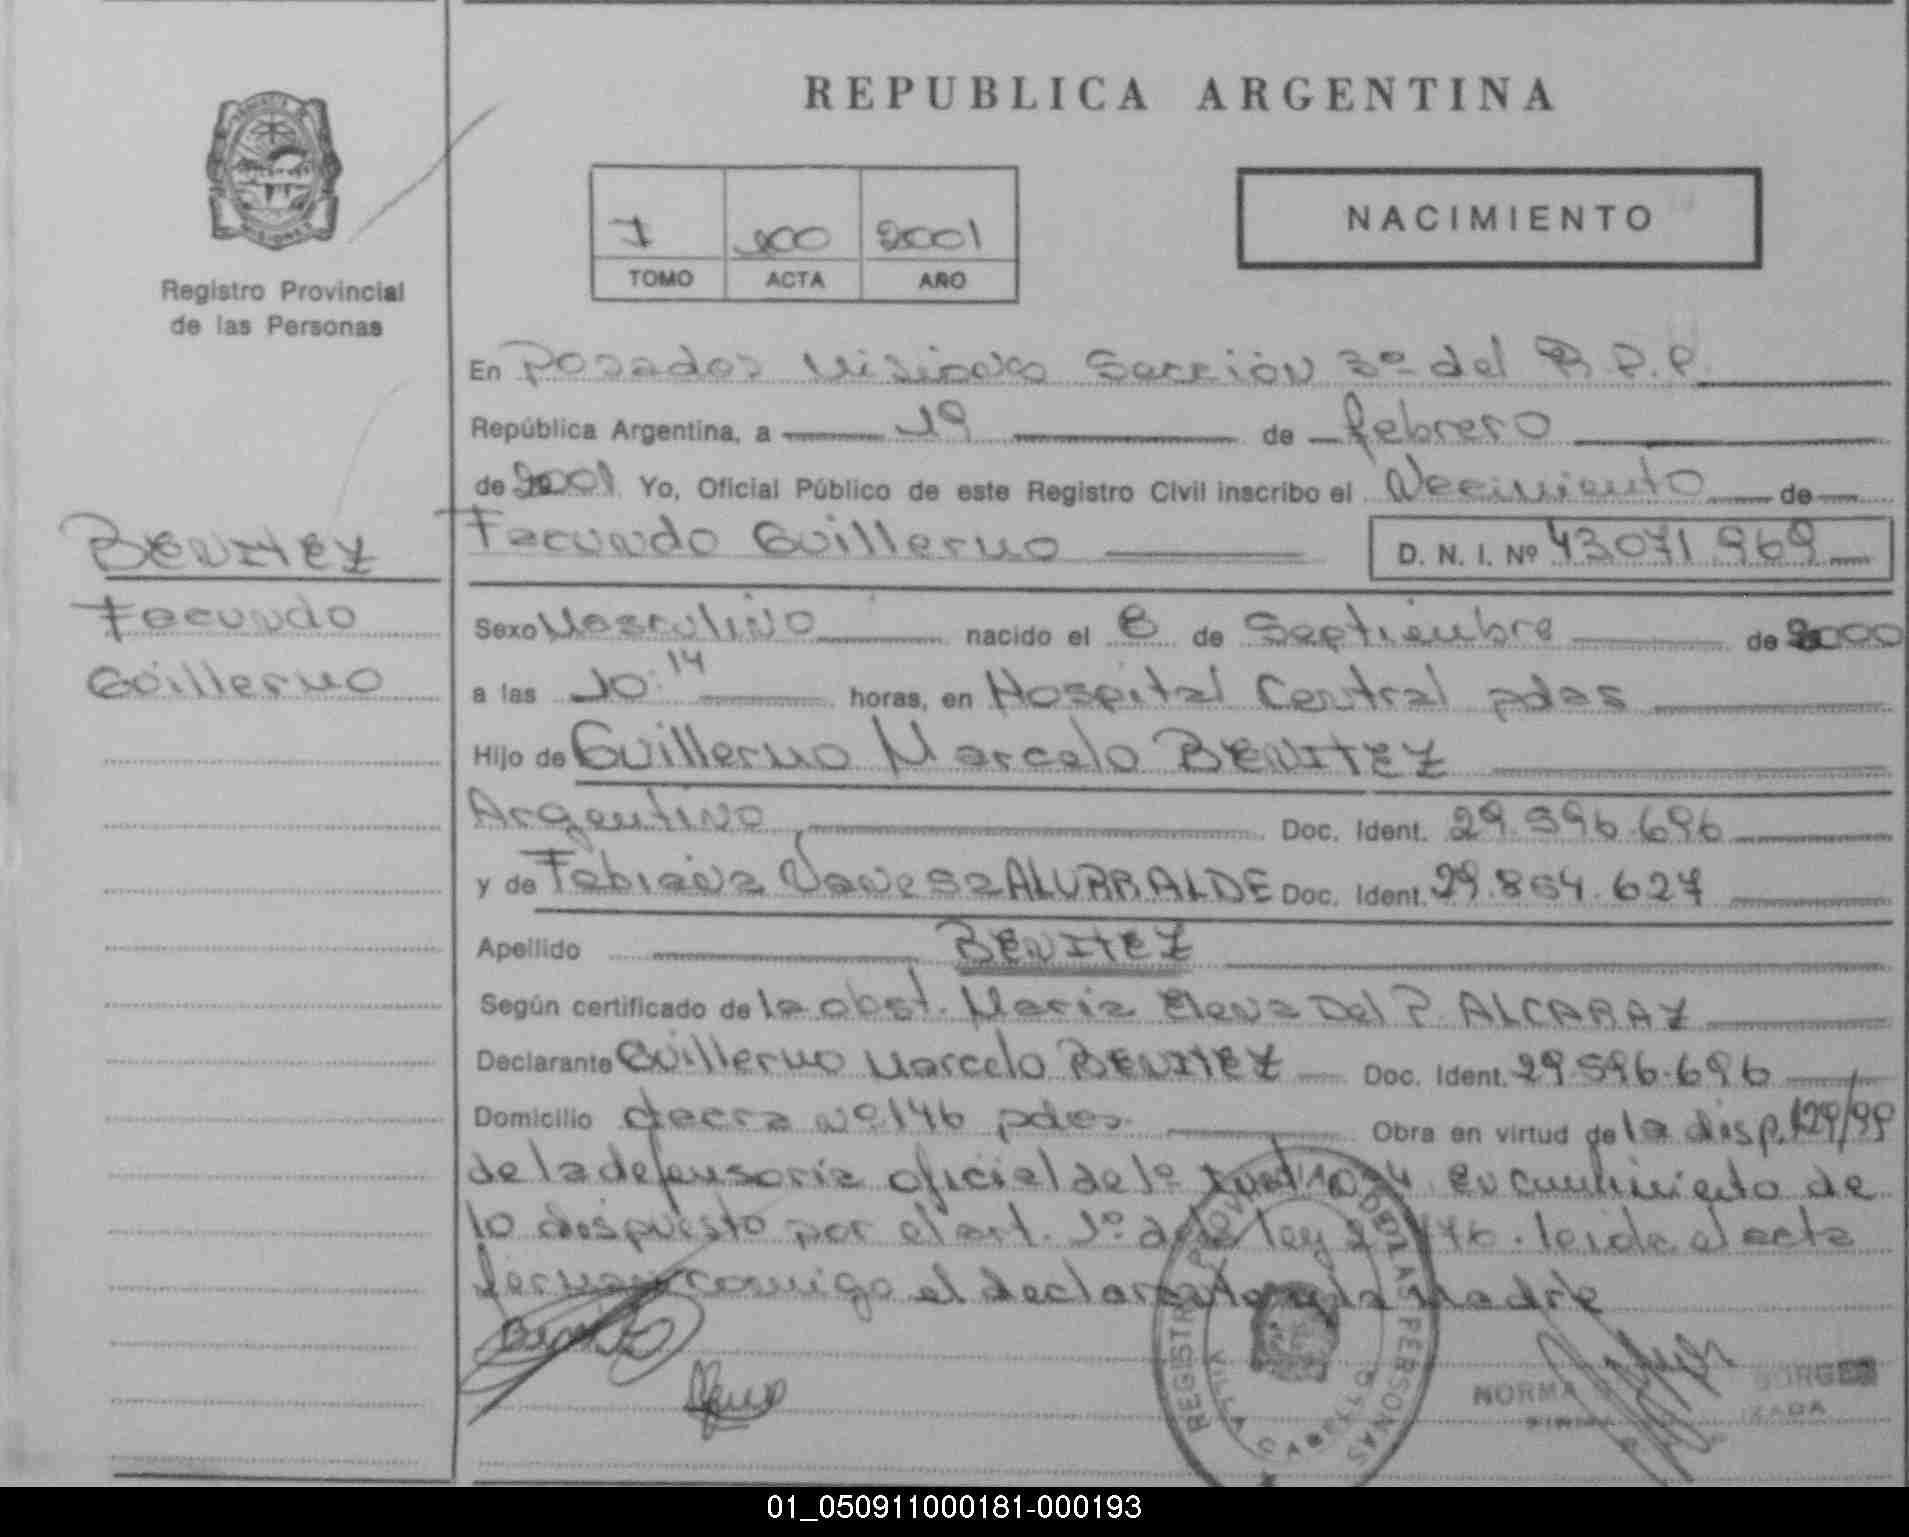 REPUBLICA ARGENTINA
MISIONES
Registro Provincial
de las Personas
7 200 2001
TOMO ACTA AÑO
NACIMIENTO
En Posadas Misiones Sección 3º del R.P.P.
República Argentina, a 19 de febrero
de 2001 Yo, Oficial Público de este Registro Civil inscribo el Nacimiento de
Facundo Guillermo D. N. I. Nº 43.071.969
BENITEZ
Facundo
Guillermo
Sexo Masculino nacido el 8 de Septiembre de 2000
a las 10:14 horas, en Hospital Central pdas
Hijo de Guillermo Marcelo BENITEZ
Argentino Doc. Ident. 29.596.696
y de Fabiana Vanesa ALURRALDE Doc. Ident. 29.864.627
Apellido BENITEZ
Según certificado de la obst. Maria Elena Del P. ALCARAZ
Declarante Guillermo Marcelo BENITEZ Doc. Ident. 29.596.696
Domicilio chacra nº 146 pdas Obra en virtud de la disp. 129/99
de la defensoria oficial de 1º en cumplimiento de
lo dispuesto por el art. 1º de la ley leida el acta
firman conmigo el declarante y la Madre
REGISTRO PROVINCIAL DE LAS PERSONAS
VILLA CABELLO
NORMA BORGES
01_050911000181-000193